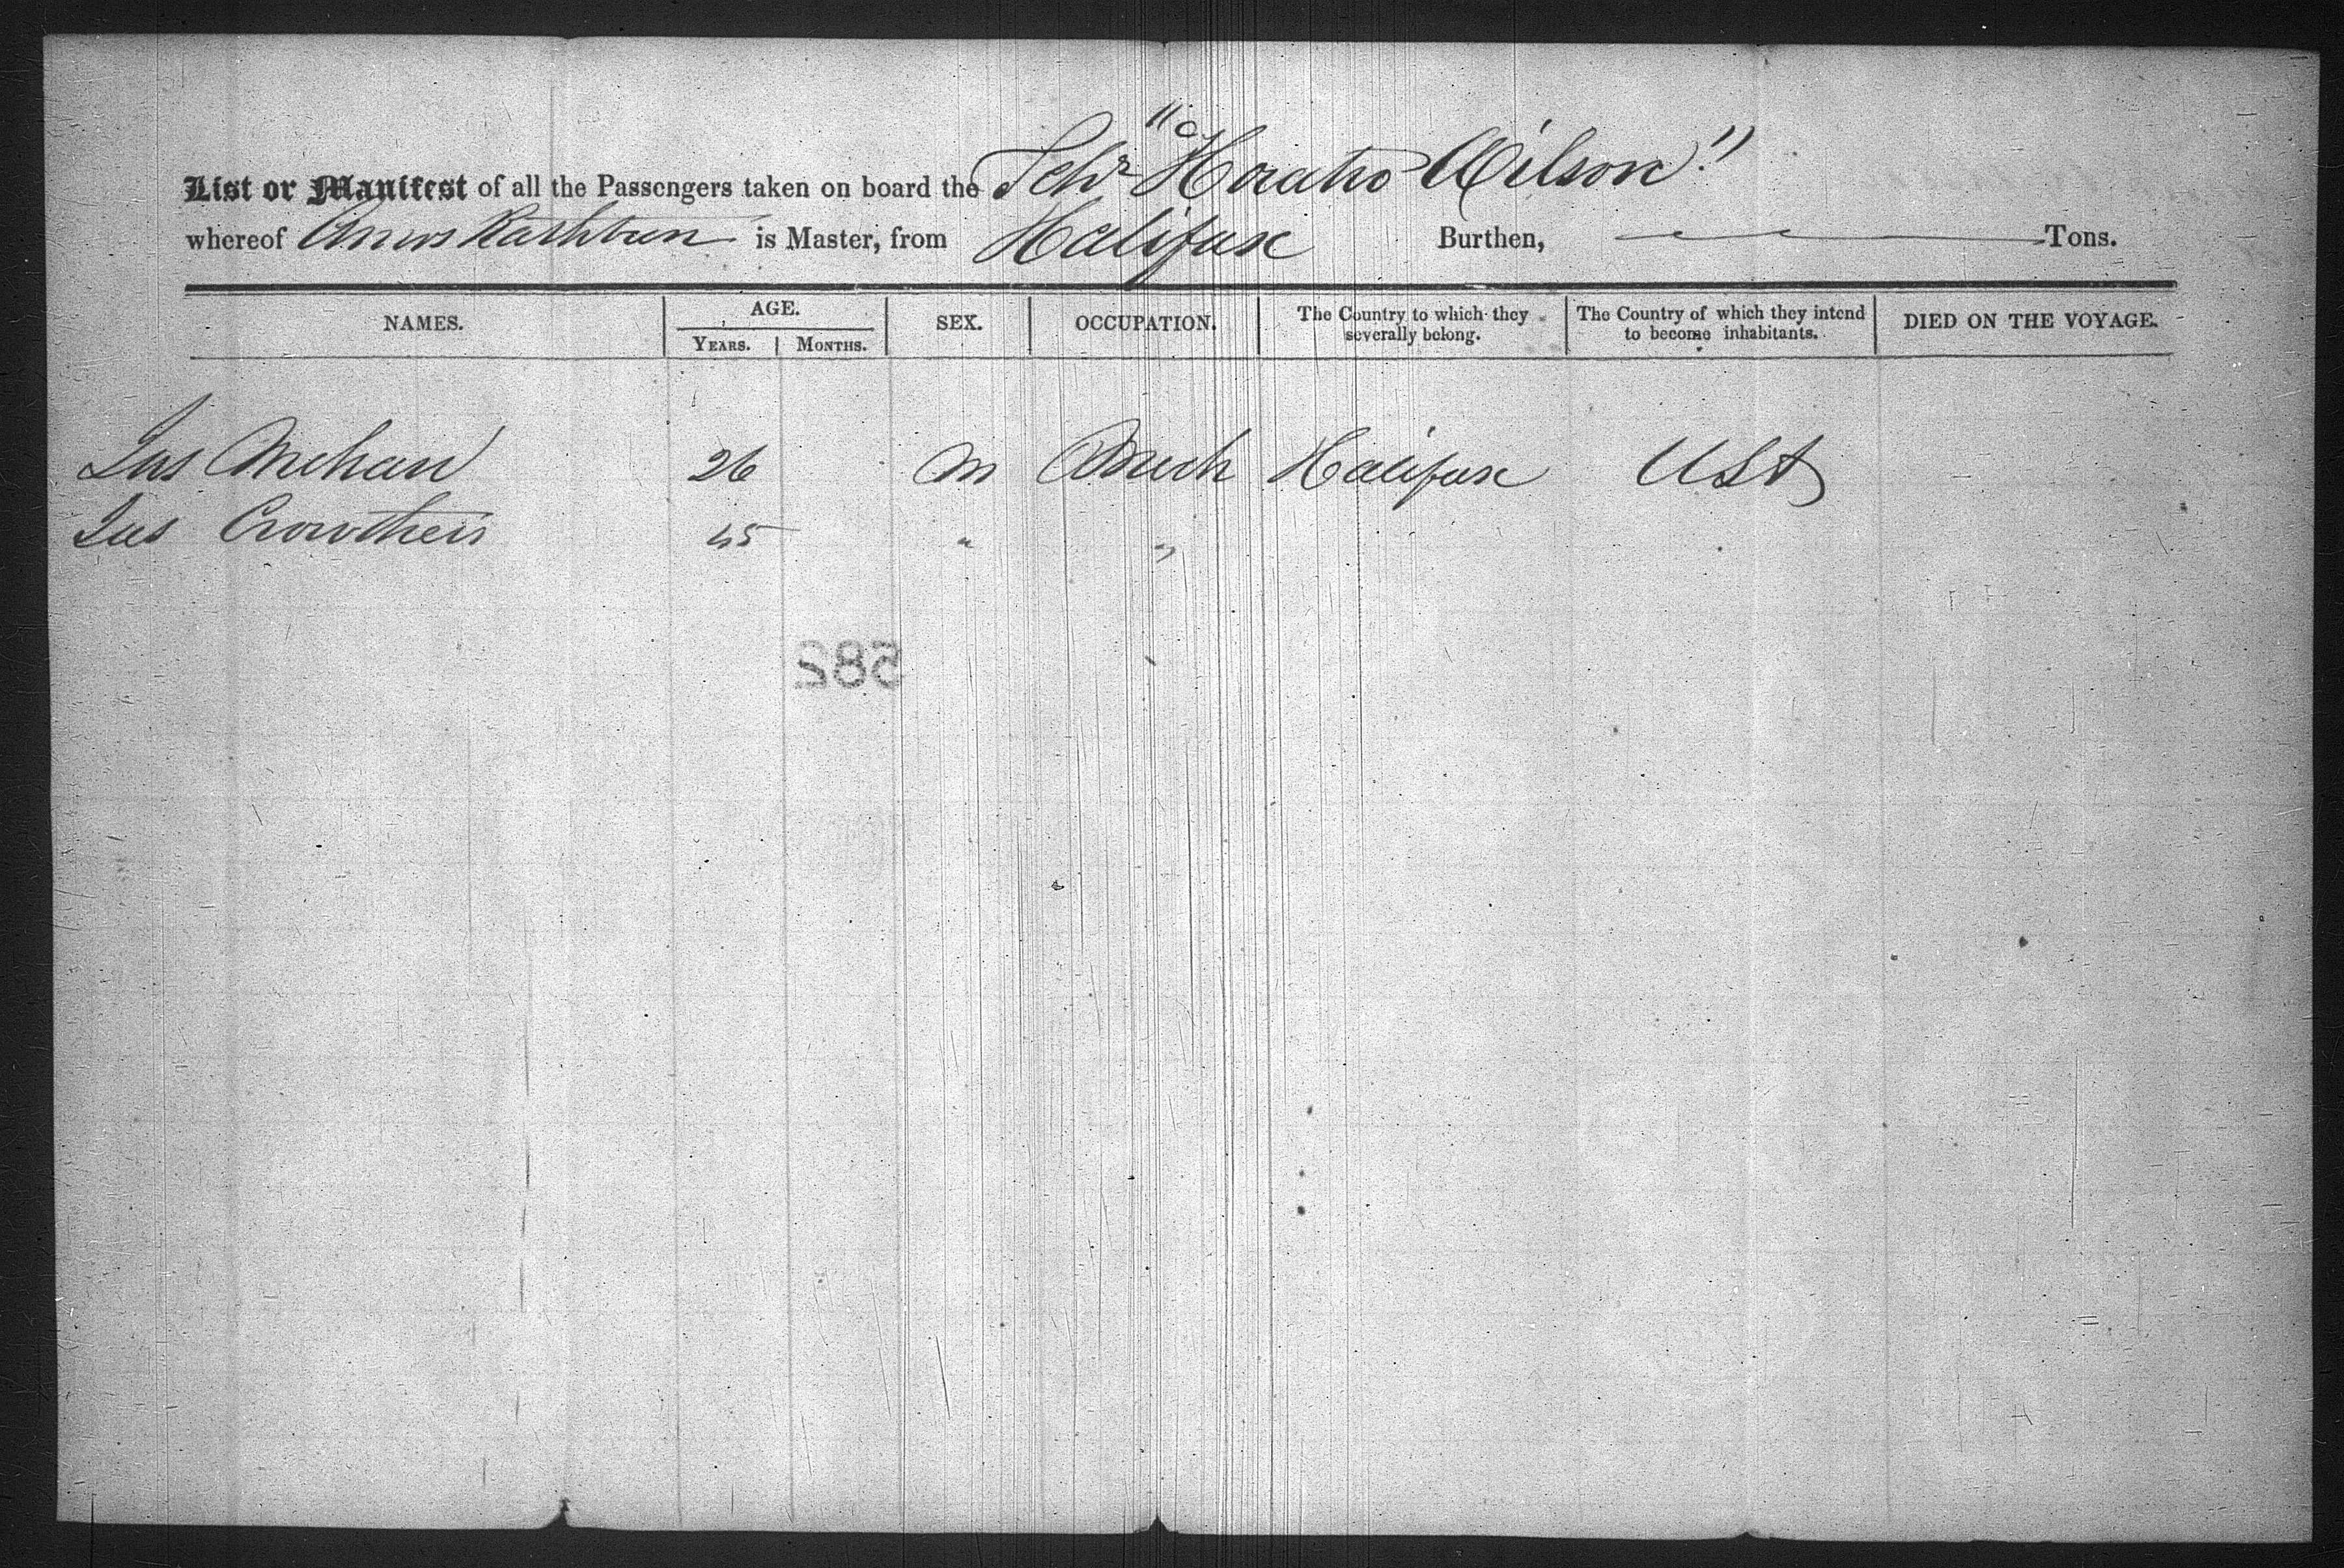 List or Manifest of all the Passengers taken on board the Schr "Horatio Wilson"
whereof Amos Rathbun is Master, from Halifax Burthen, Tons.
NAMES. AGE. YEARS. MONTHS. SEX. OCCUPATION. The Country to which they severally belong. The Country of which they intend to become inhabitants. DIED ON THE VOYAGE.
Jas Mehan 26 M Mech Halifax USA
Jas Crowthers 45 " "
582